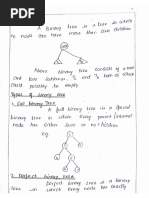 A binary tree is a tree in which
no node can have more than two children
Above binary tree consists of a root
and two subtrees, T_L and T_R both of which
could possibly be empty
Types of binary tree
1. Full Binary Tree
A full binary tree is a special
binary tree in which every parent/internal
node has either two or no children
Eg.
2. Perfect binary tree
perfect binary tree is a
tree in which every node has exactly